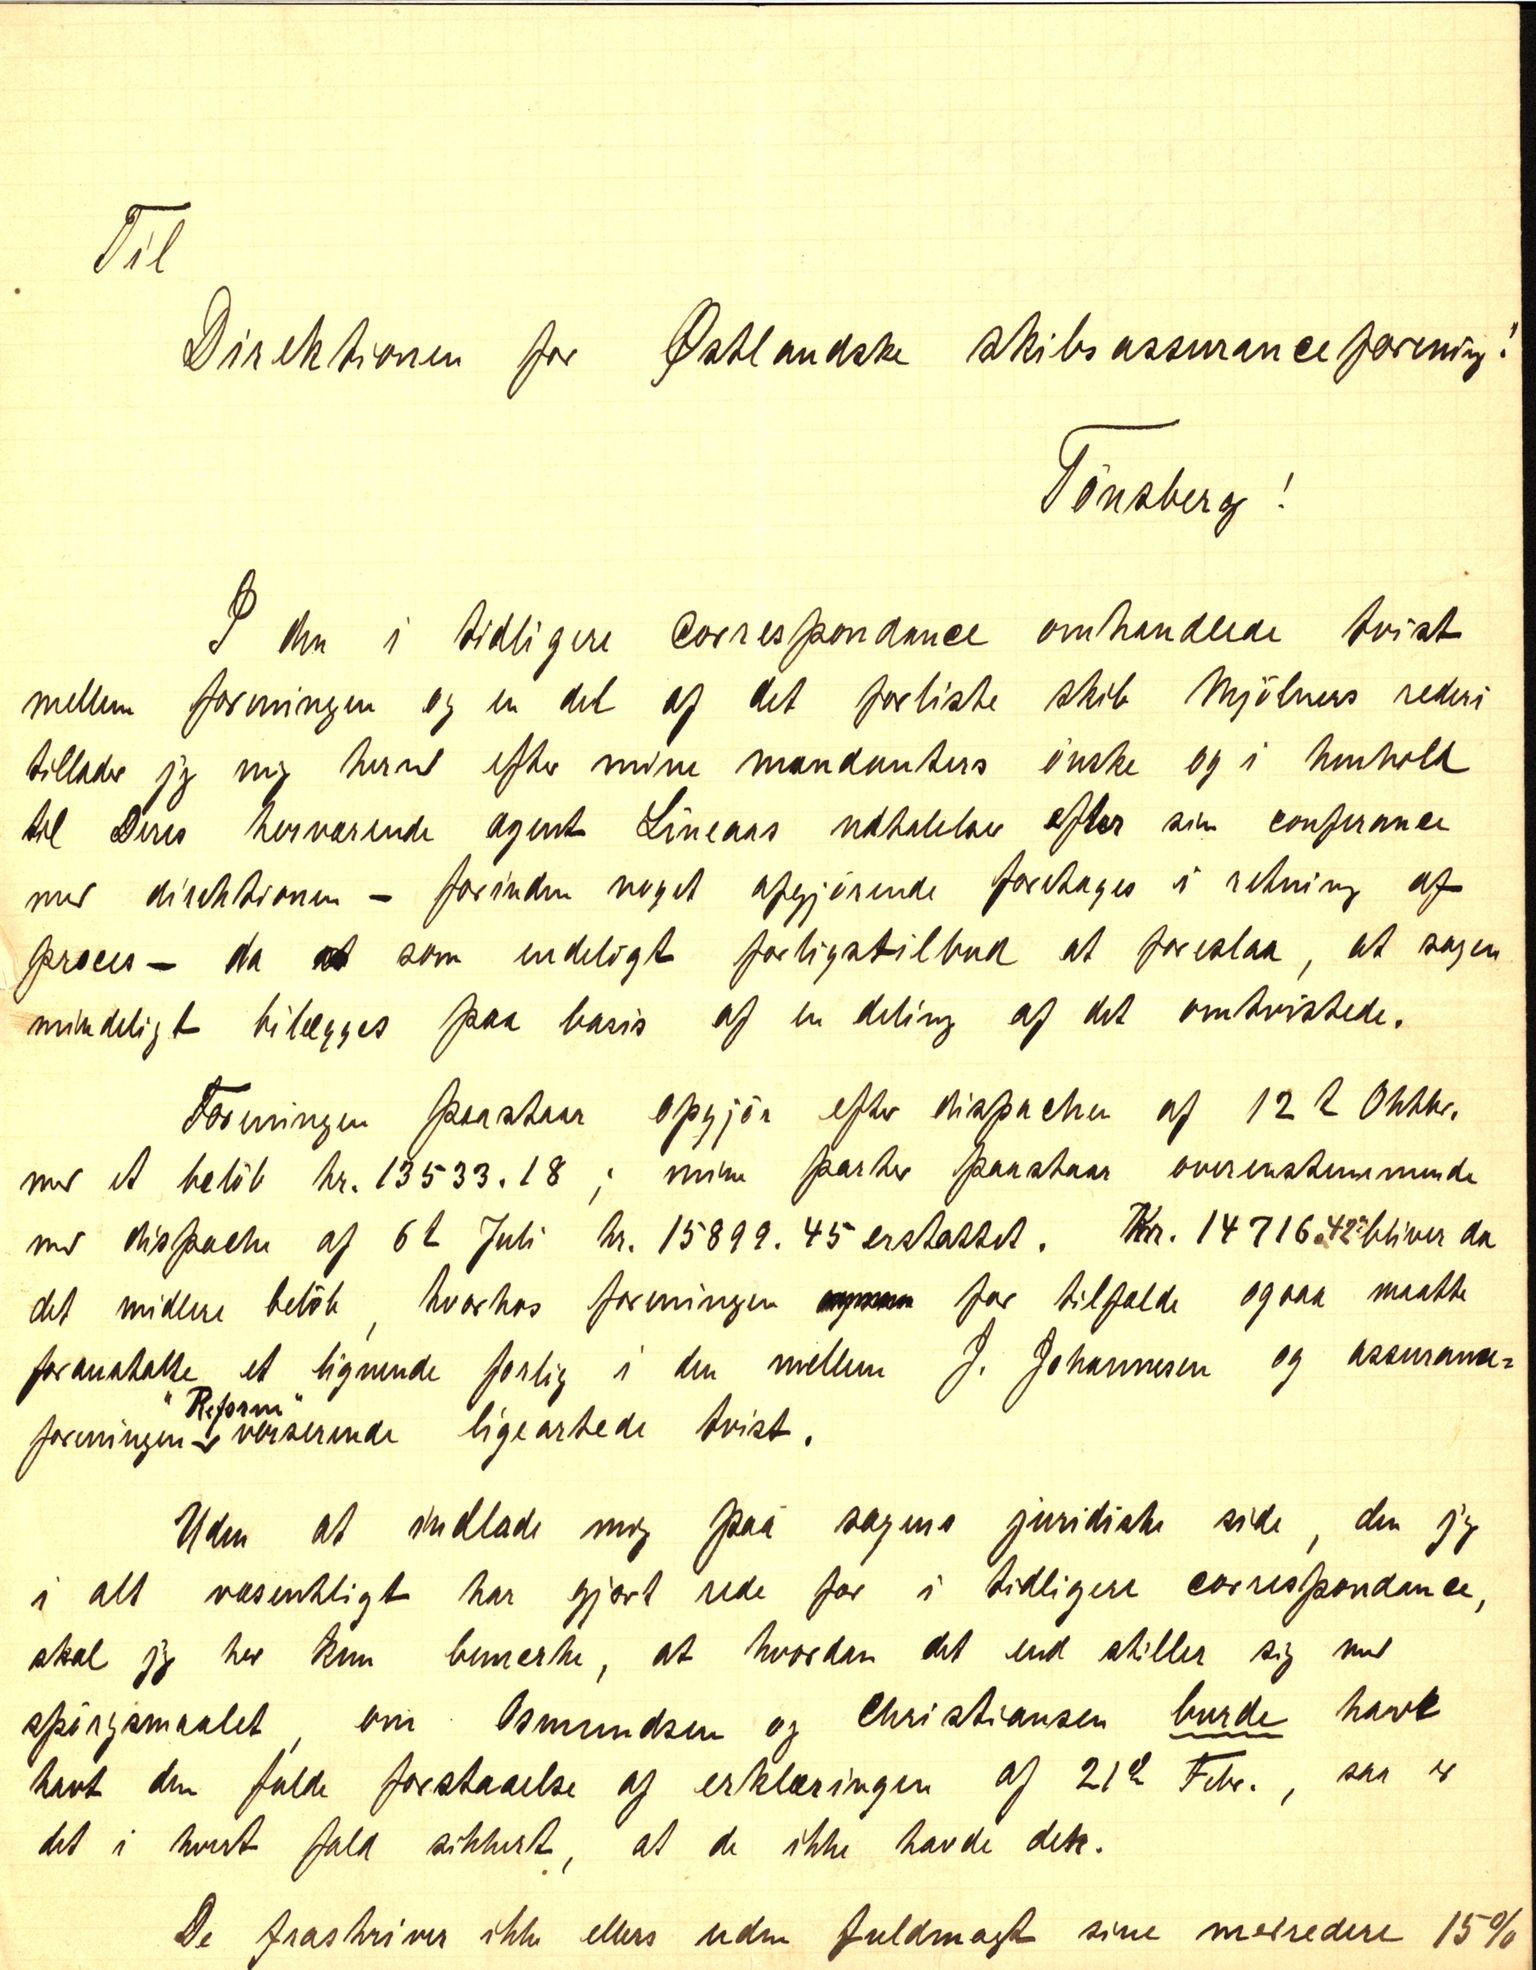 Til
Direktionen for Østlandske skibsassuranceforening!
Tönsberg!
I den i tidligere correspondance omhandlede tvist
mellem foreningen og en del af det forliste skib Mjölners rederi
tillader jeg mig herved efter mine mandanters önske og i henhold
til Deres herværende agent Lineaas udtalelser efter sin conferance
med direktionen – forinden noget afgjörende foretages i retning af
proces – da som endeligt forligstilbud at foreslaa, at sagen
mindeligt bilægges paa basis af en deling af det omtvistede.
Foreningen paastaar opgjör efter dispachen af 12t Oktbr.
med et belöb kr. 13533.18; mine parter paastaar overensstemmende
med dispache af 6t Juli kr. 15899.45 erstattet. Kr. 14716.42 bliver da
det midlere belöb, hvorhos foreningen for tilfælde ogsaa maatte
foranstalte et lignende forlig i den mellem J. Johannesen og assurance=
foreningen "Reform" verserende ligeartede tvist.
Uden at indlade mig paa sagens juridiske side, den jeg
i alt væsentligt har gjort rede for i tidligere correspondance,
skal jeg her kun bemerke, at hvordan det end stiller sig med
spörgsmaalet, om Osmundsen og Christiansen burde have
havt den fulde forstaaelse af erklæringen af 21de Febr., saa er
det i hvert fald sikkert, at de ikke havde det.
De fraskriver ikke ellers uden fuldmagt sine medredere 15%